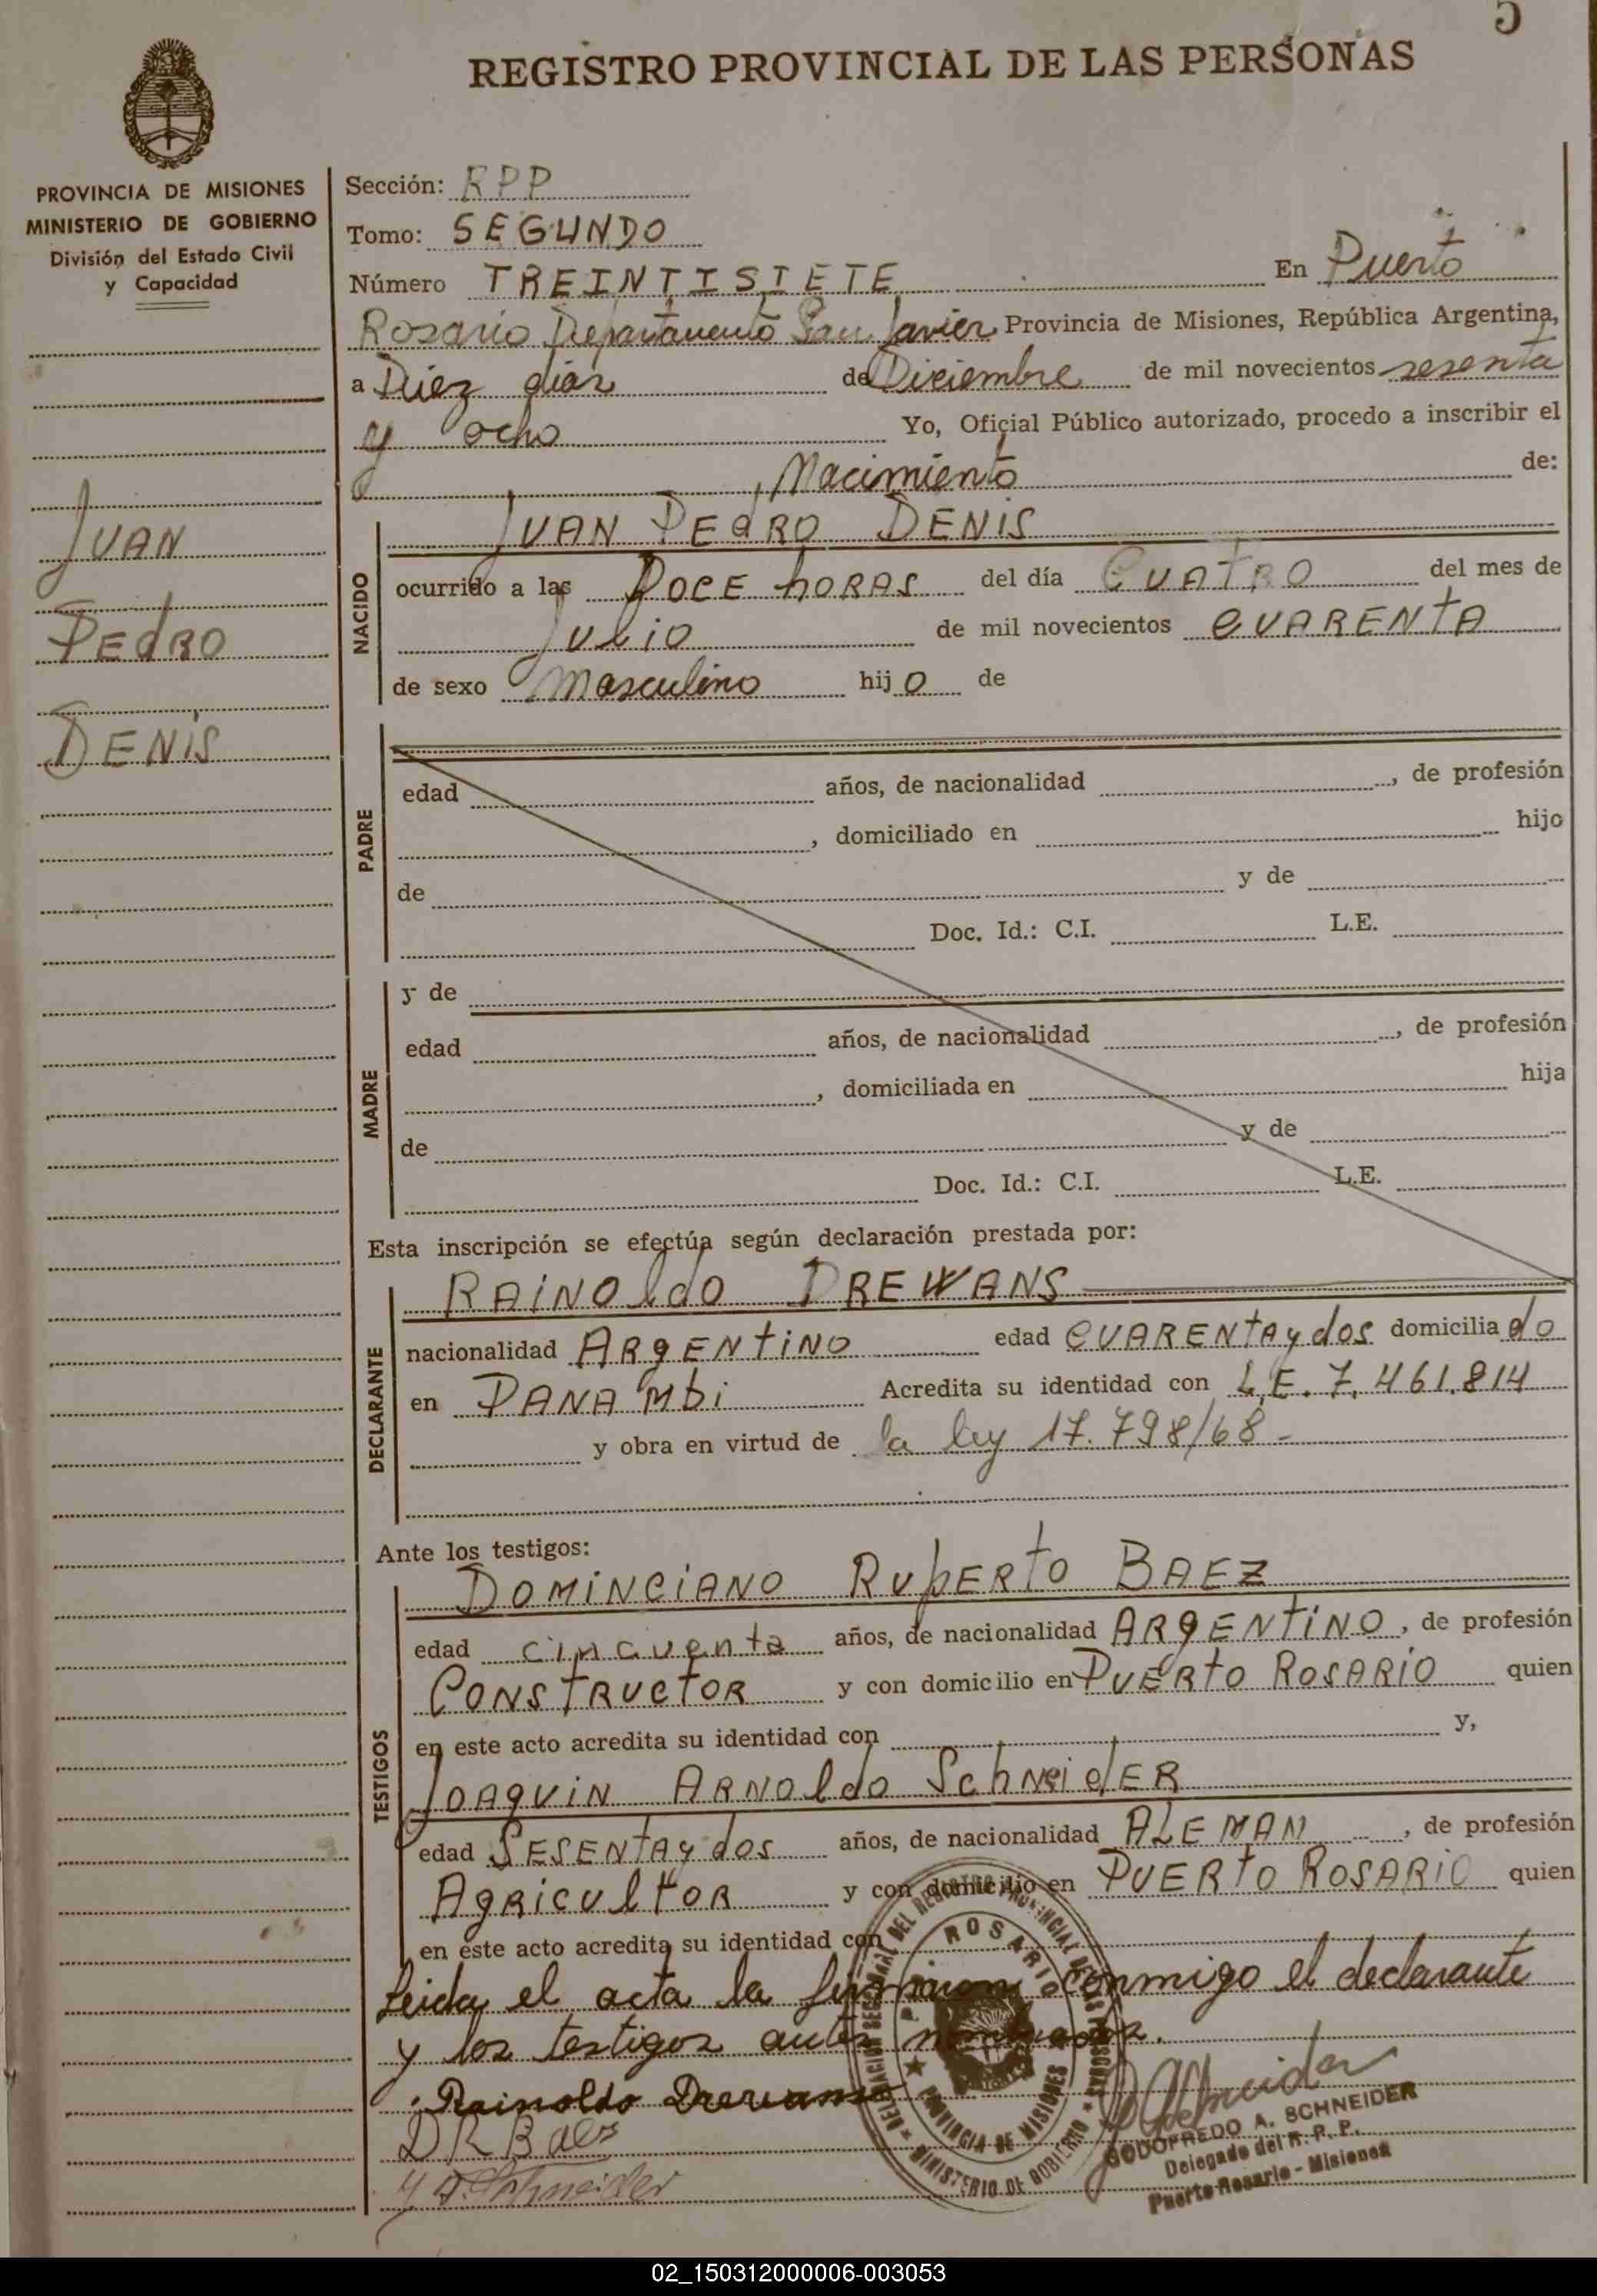 5
REGISTRO PROVINCIAL DE LAS PERSONAS
PROVINCIA DE MISIONES
MINISTERIO DE GOBIERNO
División del Estado Civil
y Capacidad
JUAN
PEdRO
DENIS
Sección: RPP
Tomo: SEGUNDO
Número TREINTISIETE En Puerto
Rosario Departamento San Javier Provincia de Misiones, República Argentina,
a Diez días de Diciembre de mil novecientos sesenta
y ocho Yo, Oficial Público autorizado, procedo a inscribir el
Nacimiento de:
NACIDO
JUAN PEdRO DENIS
ocurrido a las DOCE hORAS del día CUATRO del mes de
Julio de mil novecientos CUARENtA
de sexo Masculino hijo de
PADRE
edad años, de nacionalidad , de profesión
, domiciliado en hijo
de y de
Doc. Id.: C.I. L.E.
MADRE
y de
edad años, de nacionalidad , de profesión
, domiciliada en hija
de y de
Doc. Id.: C.I. L.E.
Esta inscripción se efectúa según declaración prestada por:
DECLARANTE
RAiNOldO DREWANS
nacionalidad ARgENtiNO edad CUARENtA y dos domiciliado
en PANAMbi Acredita su identidad con L.E. 7.461.814
y obra en virtud de la ley 17.798/68-
Ante los testigos:
TESTIGOS
DOMINCIANO RUpERtO BAEZ
edad cincuenta años, de nacionalidad ARgENtiNO, de profesión
CONSTRUCTOR y con domicilio en PUERtO ROSARIO quien
en este acto acredita su identidad con y,
JOAQUIN ARNOldO SchNeidER
edad SESENtA y dos años, de nacionalidad ALEMAN , de profesión
AgRicUltOR y con domicilio en PUERtO ROSARIO quien
en este acto acredita su identidad con
Leida el acta la firmaron conmigo el declarante
y los testigos antes nombrados.
Rainoldo Drewans
D R Baez
Schneider
DEL REGISTRO PROVINCIAL DE LAS PERSONAS
ROSARIO
PROVINCIA DE MISIONES
MINISTERIO DE GOBIERNO
GODOFREDO A. SCHNEIDER
Delegado del R. P. P.
Puerto Rosario - Misiones
02_150312000006-003053